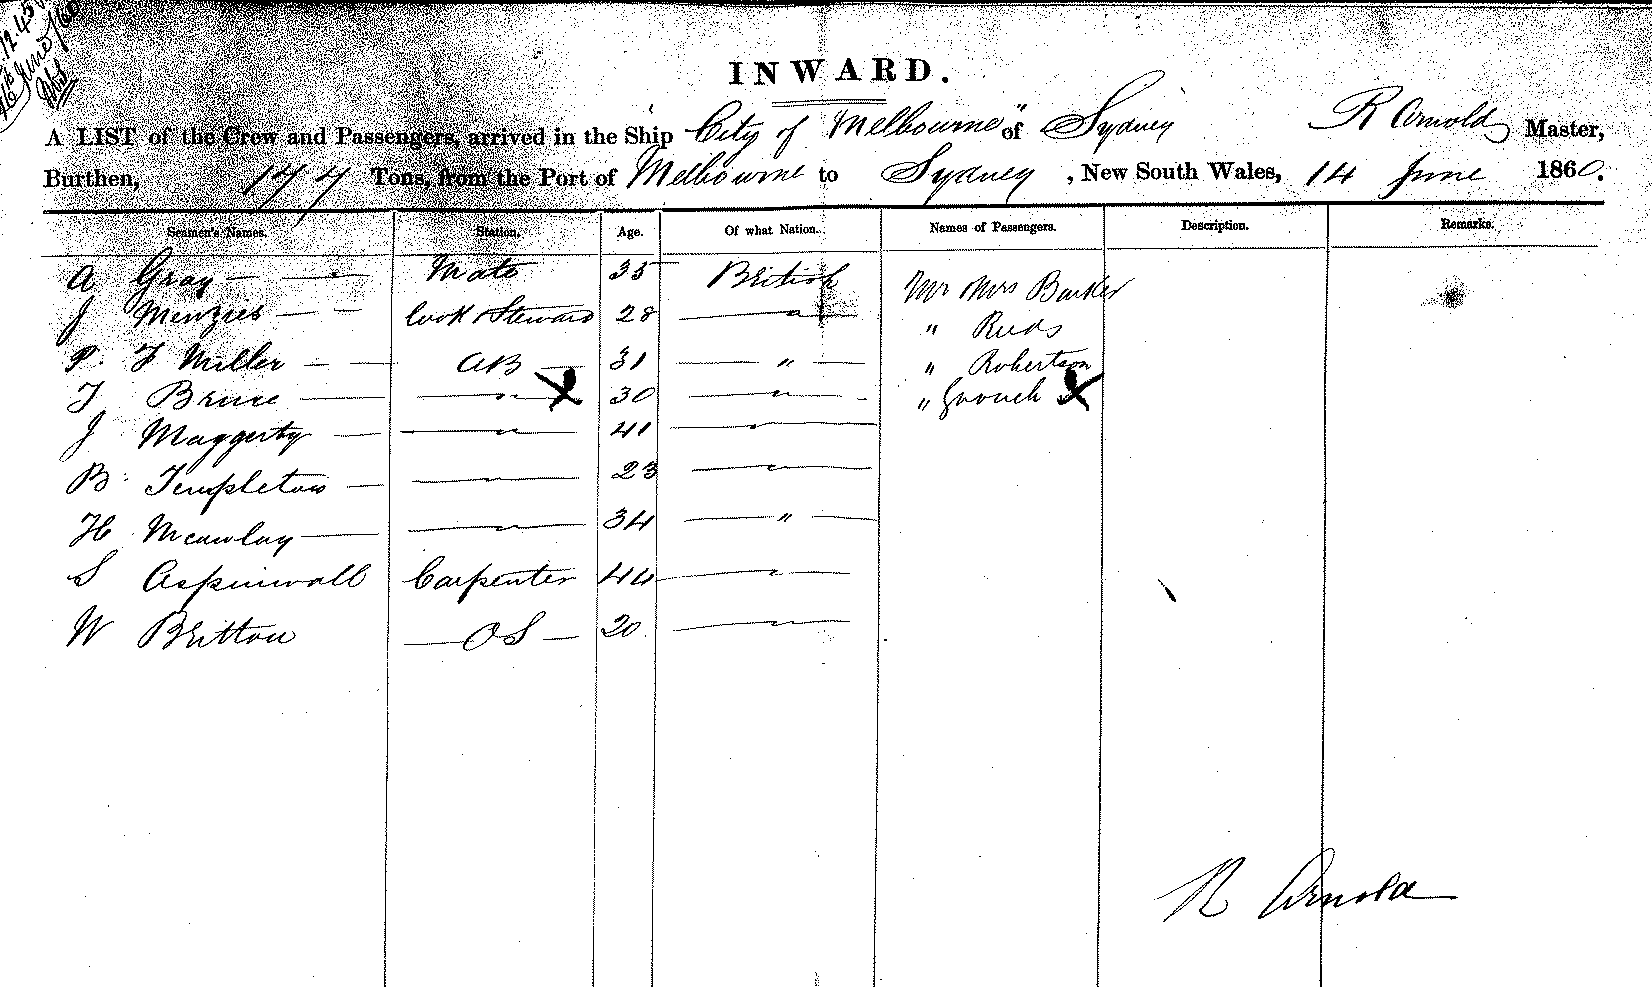 12 45
16 June /60
INWARD.
A LIST of the Crew and Passengers, arrived in the Ship "City of Melbourne" of Sydney R Arnold Master,
Burthen, 144 Tons, from the Port of Melbourne to Sydney, New South Wales, 14 June 1860.
Seamen's Names. Station. Age. Of what Nation. Names of Passengers. Description. Remarks.
A Gray — " — Mate 35 British Mr Mrs Barker
J Menzies — — Cook & Steward 28 — " — " Reeds
P. F Miller — — AB — 31 — " — " Robertson
T Bruce — — " — X 30 — " — " X
J Maggerty — — " — 41 — " —
B. Templeton — — " — 23 — " —
H Mcawlay — — " — 34 — " —
S Aspinwall Carpenter 44 — " —
W Britton — OS — 20 — " —
R Arnold